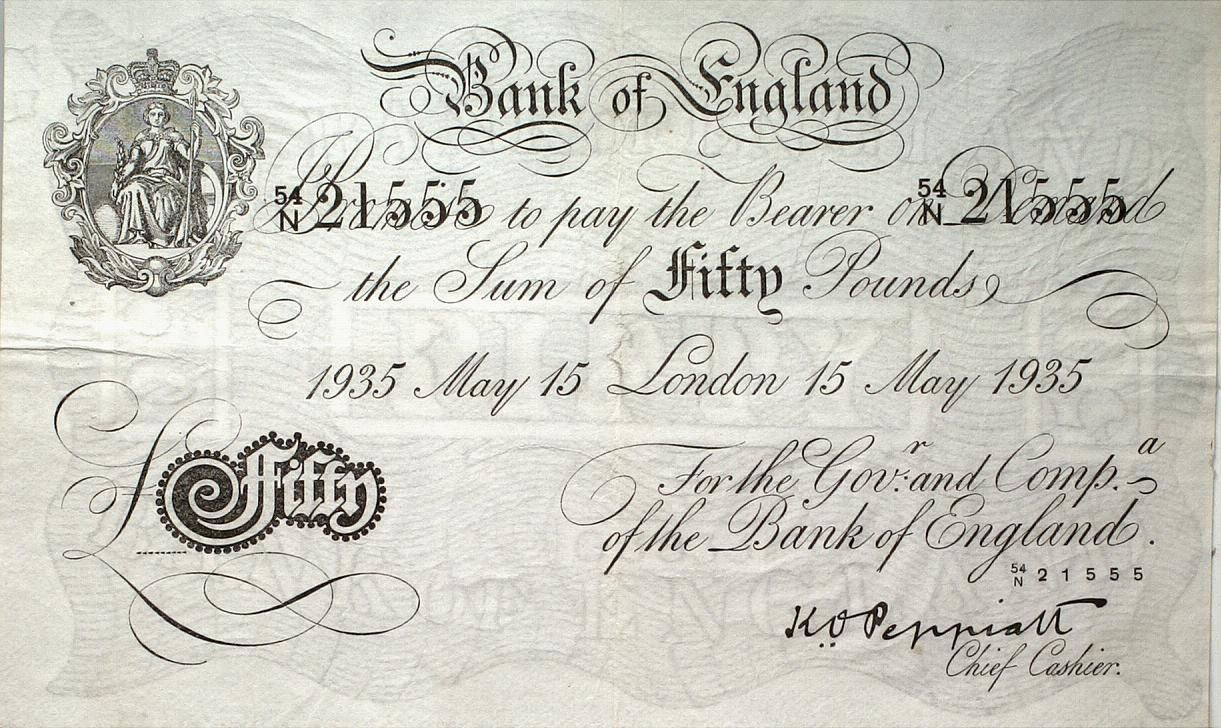 Bank of England
54 N 21555 54 N 21555
I Promise to pay the Bearer on Demand
the Sum of Fifty Pounds
1935 May 15 London 15 May 1935
£ Fifty
For the Gov.r and Comp.a
of the Bank of England.
54 N 21555
K.O. Peppiatt
Chief Cashier.